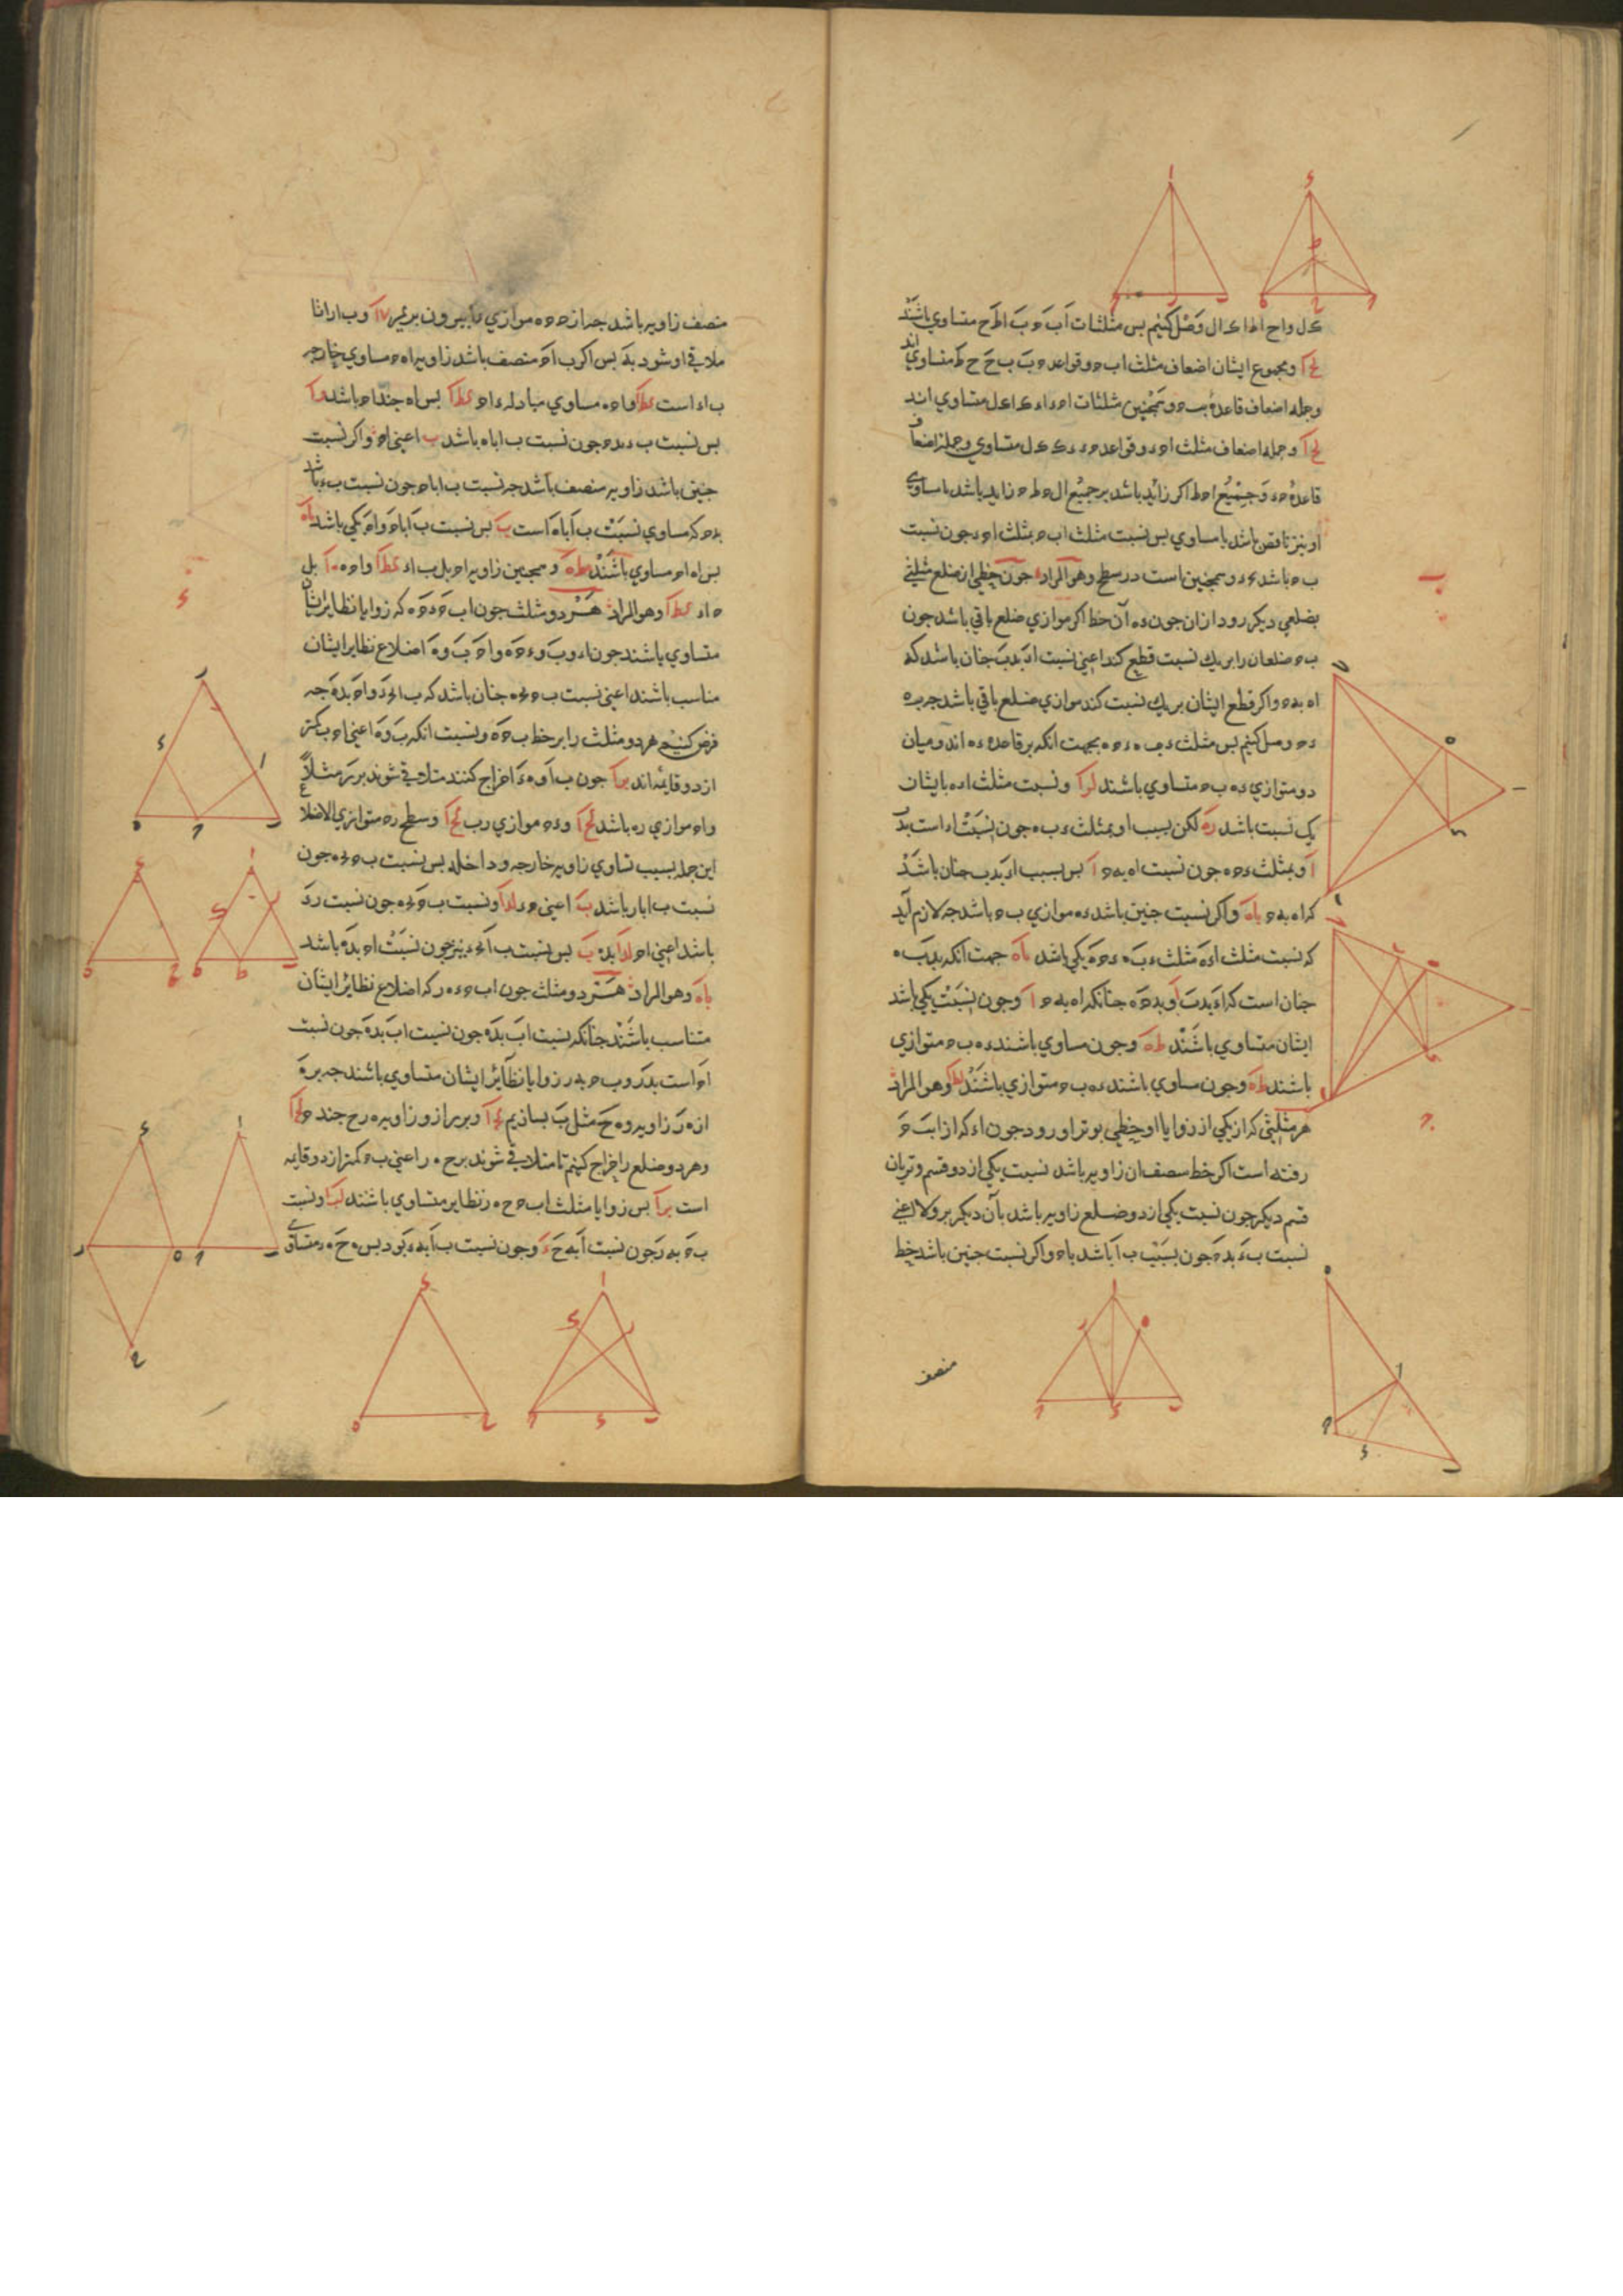 ک ل واح اط اک ال وصل کنیم بس مثلثات اب ح ب اط ح متساوی باشند
لح ا و مجموع ایشان اضعاف مثلث اب ح و قواعد ح ب ب ح ح ط متساوی اند
و جمله اضعاف قاعدهٔ ب ح و همچنین مثلثات اح د اد ک اک ل متساوی اند
لح ا و جمله اضعاف مثلث اح د و قواعد ح د د ک ک ل متساوی و جمله اضعاف
قاعدهٔ ح د و جمیع اح ط اکر زاید باشد بر جمیع ال ح ط ح زاید باشد یا مساوی
او نیز ناقص باشد یا مساوی بس نسبت مثلث اب ح بمثلث اح د جون نسبت
ب ح باشد بح د و همچنین است در سطح وهو المراد جون خطی از ضلع مثلثی
بضلعی دیکر رود ازان جون د ه آن خط اکر موازی ضلع باقی باشد جون
ب ح ضلعان را بریک نسبت قطع کند اعنی نسبت اد بدب جنان باشد که
اه به ح و اکر قطع ایشان بریک نسبت کند موازی ضلع باقی باشد جه ب ه
د ح وصل کنیم بس مثلث د ب ه د ح ه بجهت انکه بر قاعده د ه اند و میان
دو متوازی د ه ب ح متساوی باشند لر ا و نسبت مثلث اد ه بایشان
یک نسبت باشد ره لکن بسبب او بمثلث د ب ه جون نسبت اد است بدب
ا و بمثلث د ح ه جون نسبت اه به ح ا بس بسبب اد بدب جنان باشد
که اه به ح یاه و اکر نسبت جنین باشد د ه موازی ب ح باشد جه لازم آید
که نسبت مثلث اد ه مثلث د ب ه د ح ه یکی باشد یاه جهت انکه بدب ه
جنان است که اد بدب ا و بد ح ه جنانکه اه به ح ا و جون نسبت یکی باشد
ایشان متساوی باشند طه و جون مساوی باشند د ه ب ح متوازی
باشند طه و جون مساوی باشند د ه ب ح متوازی باشند لط ا وهو المراد
هر مثلثی که از یکی از زوایا او خطی بوتر او رود جون اد که از اب ح
رفته است اکر خط منصف ان زاویه باشد نسبت یکی از دو قسم وتر بان
قسم دیکر جون نسبت یکی از دو ضلع زاویه باشد بآن دیکر بر ولا اعنی
نسبت ب د بد ح جون نسبت ب ا باشد باح و اکر نسبت جنین باشد خط
منصف
منصف زاویه باشد جه از ح ح ه موازی دا بیرون بریم لا ا و ب ا را تا
ملاقی او شود به ه بس اکر ب اح منصف باشد زاویه اه ح مساوی خارجه
ب اد است کط ا و اح ه مساوی مبادله د اح کط ا بس اه جند اح باشد و ا
بس نسبت ب د بد ح جون نسبت ب ا باه باشد ب اعنی اح و اکر نسبت
جنین باشد زاویه منصف باشد جه نسبت ب ا باح جون نسبت ب د باشد
بد ح که مساوی نسبت ب ا باه است ب بس نسبت ب ا باح و اه یکی باشد یاه
بس اه اح مساوی باشند طه و همجنین زاویه اح ه بل ب اد کط ا و اح ه ه ا بل
ح اد کط ا وهو المراد هر دو مثلث جون اب ح د ح ه که زوایا نظایر ایشان
متساوی باشند جون ا و د و ب و د ح ه و اح ب و ه اضلاع نظایر ایشان
مناسب باشند اعنی نسبت ب ح بح ه جنان باشد که ب ا بح د و اح بد ه جه
فرض کنیم هر دو مثلث را بر خط ب ح ه و نسبت انکه ب و ه اعنی اح ب کمتر
از دو قایمه اند یرا جون ب ا و ه د اخراج کنند متلاقی شوند بر ر مثلاً
و اح موازی ره باشد لح ا و د ح موازی رب لح ا و سطح ر ح متوازی الاضلاع
این جمله بسبب تساوی زاویه خارجه و داخله بس نسبت ب ح بح ه جون
نسبت ب ا بار باشد ب اعنی ح د لد ا و نسبت ب ح بح ه جون نسبت ر د
باشد اعنی اح لد ا بد ه ب بس نسبت ب ا بح د نیز جون نسبت اح بد ه باشد
یاه وهو المراد هر دو مثلث جون اب ح د ه ر که اضلاع نظائر ایشان
متناسب باشند جنانکه نسبت اب بد ه جون نسبت اب بد ه جون نسبت
اح است بدر و ب ح به ر زوایا نظائر ایشان متساوی باشند جه بر ه
از ه ر زاویه ر ه ح مثل ب بسازیم لح ا و بر ر از ه ر زاویه ه ر ح جند ح لح ا
و هر دو ضلع را اخراج کنیم تا متلاقی شوند بر ح ه ر اعنی ب ح کمتر از دو قایمه
است یرا بس زوایا مثلث اب ح ح ه ر نظایر متساوی باشند لب ا و نسبت
ب ح به ر جون نسبت اب به ح د و جون نسبت ب ا به د بود بس ه ح ه د متساوی